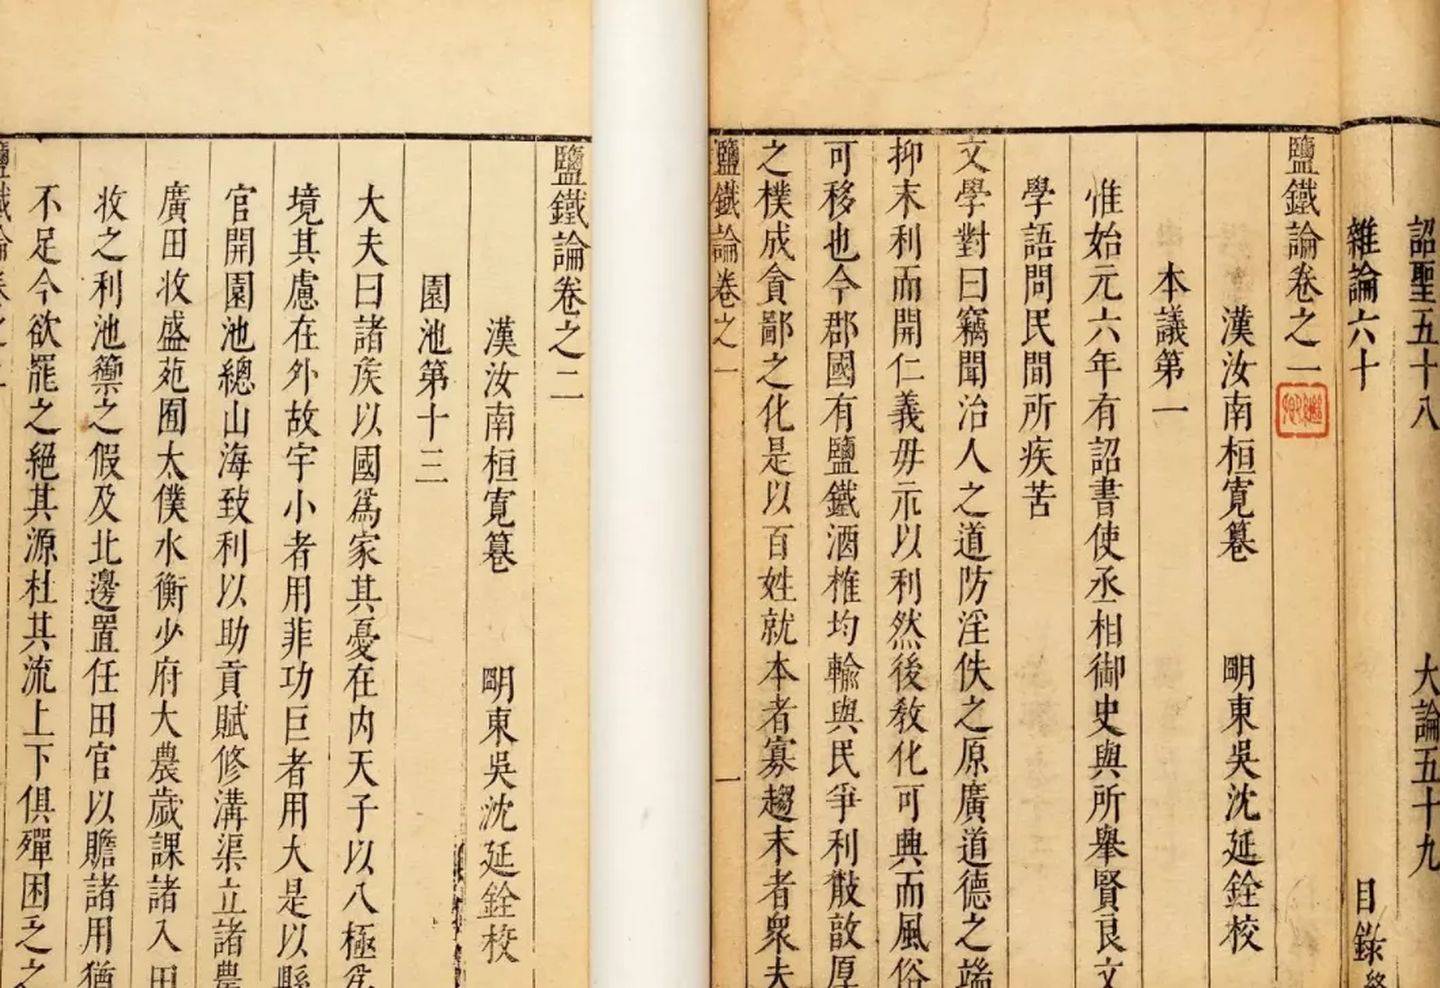 詔聖五十八 大論五十九
雜論六十 目錄終
鹽鐵論卷之一
漢汝南桓寬篹 明東吳沈延銓校
本議第一
惟始元六年有詔書使丞相御史與所舉賢良文
學語問民間所疾苦
文學對曰竊聞治人之道防淫佚之原廣道德之端
抑末利而開仁義毋示以利然後敎化可興而風俗
可移也今郡國有鹽鐵酒榷均輸與民爭利散敦厚
之樸成貪鄙之化是以百姓就本者寡趨末者衆夫
鹽鐵論卷之一 一
鹽鐵論卷之二
漢汝南桓寬篹 明東吳沈延銓校
園池第十三
大夫曰諸侯以國爲家其憂在内天子以八極爲
境其慮在外故宇小者用菲功巨者用大是以縣
官開園池總山海致利以助貢賦修溝渠立諸農
廣田收盛苑囿太僕水衡少府大農歲課諸入田
收之利池籞之假及北邊置任田官以贍諸用猶
不足今欲罷之絕其源杜其流上下俱殫困乏之
鹽鐵論卷之二